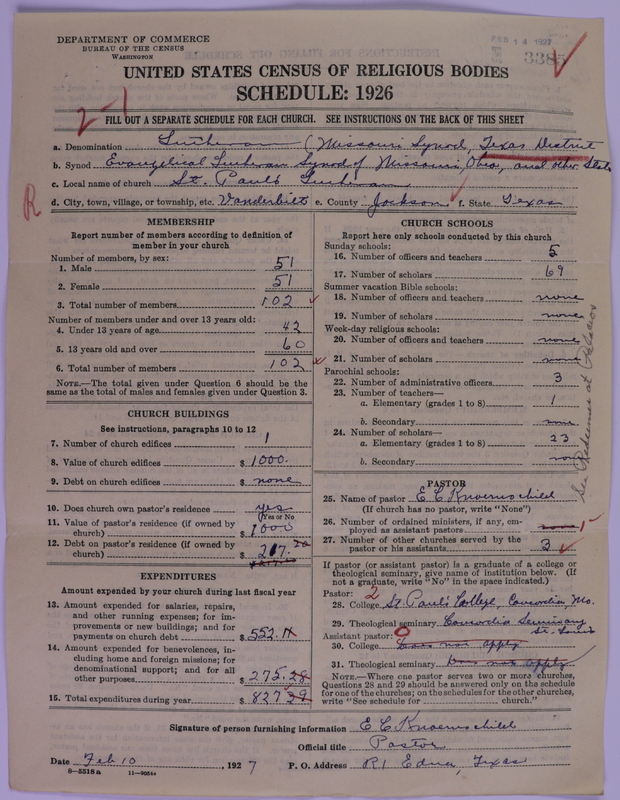 DEPARTMENT OF COMMERCE
BUREAU OF THE CENSUS
WASHINGTON
FEB 14 1927
3385
UNITED STATES CENSUS OF RELIGIOUS BODIES
SCHEDULE: 1926
2-1
FILL OUT A SEPARATE SCHEDULE FOR EACH CHURCH. SEE INSTRUCTIONS ON THE BACK OF THIS SHEET
a. Denomination Lutheran (Missouri Synod, Texas District
b. Synod Evangelical Lutheran Synod of Missouri, Ohio, and other States
c. Local name of church St. Paul's Lutheran
R
d. City, town, village, or township, etc. Vanderbilt e. County Jackson f. State Texas
MEMBERSHIP
Report number of members according to definition of member in your church
Number of members, by sex:
1. Male 51
2. Female 51
3. Total number of members 102
Number of members under and over 13 years old:
4. Under 13 years of age 42
5. 13 years old and over 60
6. Total number of members 102
NOTE.—The total given under Question 6 should be the same as the total of males and females given under Question 3.
CHURCH BUILDINGS
See instructions, paragraphs 10 to 12
7. Number of church edifices 1
8. Value of church edifices $ 1000.
9. Debt on church edifices $ none
10. Does church own pastor's residence yes
(Yes or No)
11. Value of pastor's residence (if owned by church) $ 1000
12. Debt on pastor's residence (if owned by church) $ 217.
EXPENDITURES
Amount expended by your church during last fiscal year
13. Amount expended for salaries, repairs, and other running expenses; for improvements or new buildings; and for payments on church debt $ 552.
14. Amount expended for benevolences, including home and foreign missions; for denominational support; and for all other purposes $ 275.28
15. Total expenditures during year $ 827.
CHURCH SCHOOLS
Report here only schools conducted by this church
Sunday schools:
16. Number of officers and teachers 5
17. Number of scholars 69
Summer vacation Bible schools:
18. Number of officers and teachers none
19. Number of scholars none
Week-day religious schools:
20. Number of officers and teachers none
21. Number of scholars none
Parochial schools:
22. Number of administrative officers 3
23. Number of teachers—
a. Elementary (grades 1 to 8) 1
b. Secondary none
24. Number of scholars—
a. Elementary (grades 1 to 8) 23
b. Secondary none
See Redeemer at Palacios
PASTOR
25. Name of pastor E C Knoernschild
(If church has no pastor, write "None")
26. Number of ordained ministers, if any, employed as assistant pastors none
27. Number of other churches served by the pastor or his assistants 3
If pastor (or assistant pastor) is a graduate of a college or theological seminary, give name of institution below. (If not a graduate, write "No" in the space indicated.)
Pastor: 2
28. College St. Paul's College, Concordia, Mo.
29. Theological seminary Concordia Seminary St. Louis
Assistant pastor: 0
30. College Does not apply
31. Theological seminary Does not apply
NOTE.—Where one pastor serves two or more churches, Questions 28 and 29 should be answered only on the schedule for one of the churches; on the schedules for the other churches, write "See schedule for church."
Signature of person furnishing information E C Knoernschild
Official title Pastor
Date Feb 10, 1927 P. O. Address R1 Edna, Texas
8—5518 a 11—9054